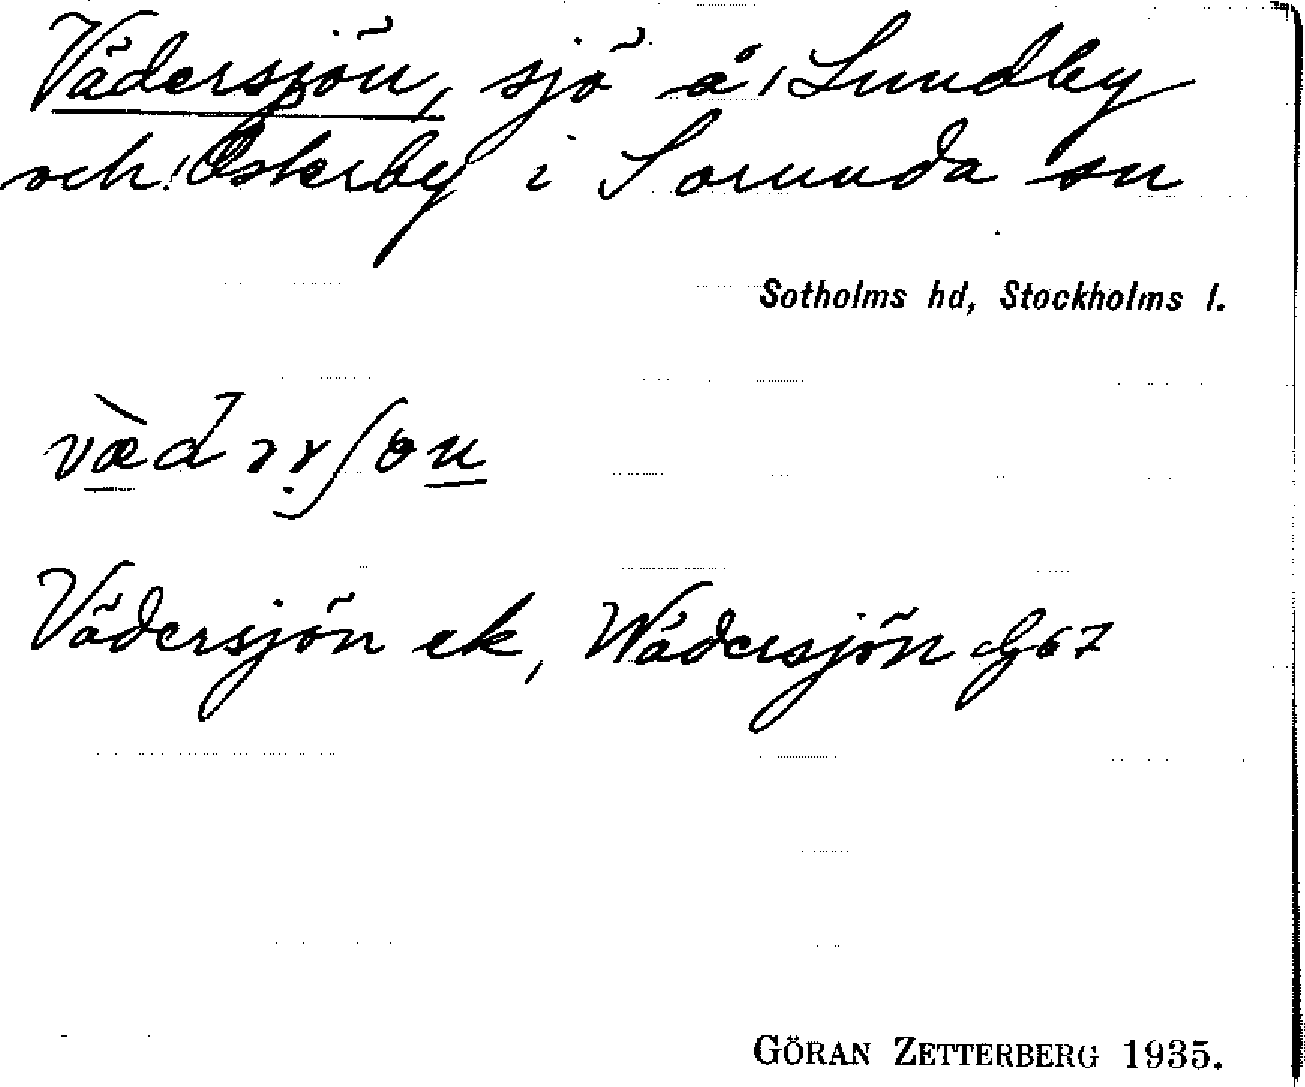 Vädersjön, sjö å Lundby
och Österby i Sorunda sn
Sotholms hd, Stockholms l.
Vädersjön ek, Wädersjön G67
GÖRAN ZETTERBERG 1935.